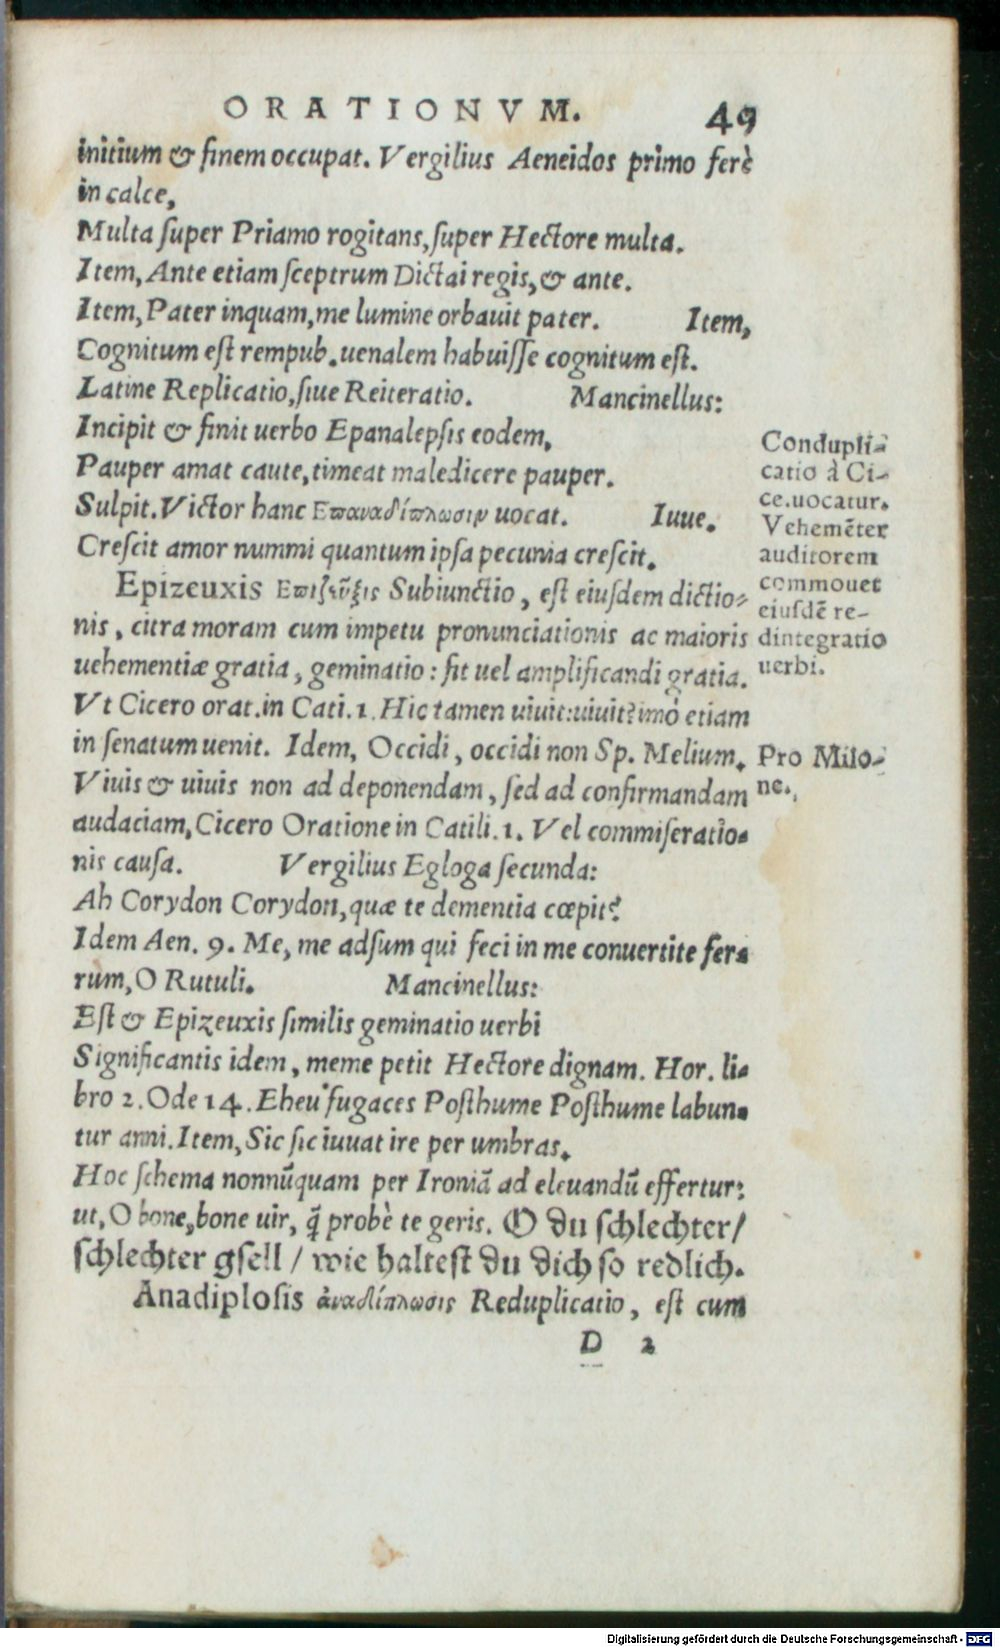 ORATIONVM. 49
initium & finem occupat. Vergilius Aeneidos primo ferè
in calce,
Multa ſuper Priamo rogitans, ſuper Hectore multa.
Item, Ante etiam ſceptrum Dictai regis, & ante.
Item, Pater inquam, me lumine orbauit pater. Item,
Cognitum eſt rempub. uenalem habuiſſe cognitum eſt.
Latine Replicatio, ſiue Reiteratio. Mancinellus:
Incipit & finit uerbo Epanalepſis eodem,
Pauper amat caute, timeat maledicere pauper.
Sulpit. Victor hanc Επαναδίπλωσιν uocat. Iuue.
Creſcit amor nummi quantum ipſa pecunia creſcit.
Epizeuxis Επιζεῦξις Subiunctio, eſt eiuſdem dictio-
nis, citra moram cum impetu pronunciationis ac maioris
uehementiæ gratia, geminatio: fit uel amplificandi gratia.
Vt Cicero orat. in Cati. 1. Hic tamen uiuit: uiuit? imò etiam
in ſenatum uenit. Idem, Occidi, occidi non Sp. Melium.
Viuis & uiuis non ad deponendam, ſed ad confirmandam
audaciam, Cicero Oratione in Catili. 1. Vel commiſeratio-
nis cauſa. Vergilius Egloga ſecunda:
Ah Corydon Corydon, quæ te dementia cœpit?
Idem Aen. 9. Me, me adſum qui feci in me conuertite fer-
rum, O Rutuli. Mancinellus:
Eſt & Epizeuxis ſimilis geminatio uerbi
Significantis idem, meme petit Hectore dignam. Hor. li-
bro 2. Ode 14. Eheu fugaces Poſthume Poſthume labun-
tur anni. Item, Sic ſic iuuat ire per umbras.
Hoc ſchema nonnūquam per Ironiā ad eleuandū effertur:
ut, O bone, bone uir, q̃ probè te geris. O du ſchlechter/
ſchlechter gſell / wie halteſt du dich ſo redlich.
Anadiploſis ἀναδίπλωσις Reduplicatio, eſt cum
D 2
Condupli-
catio à Ci-
ce. uocatur.
Vehemẽter
auditorem
commouet
eiuſdẽ re-
dintegratio
uerbi.
Pro Milo-
ne.
Digitalisierung gefördert durch die Deutsche Forschungsgemeinschaft - DFG